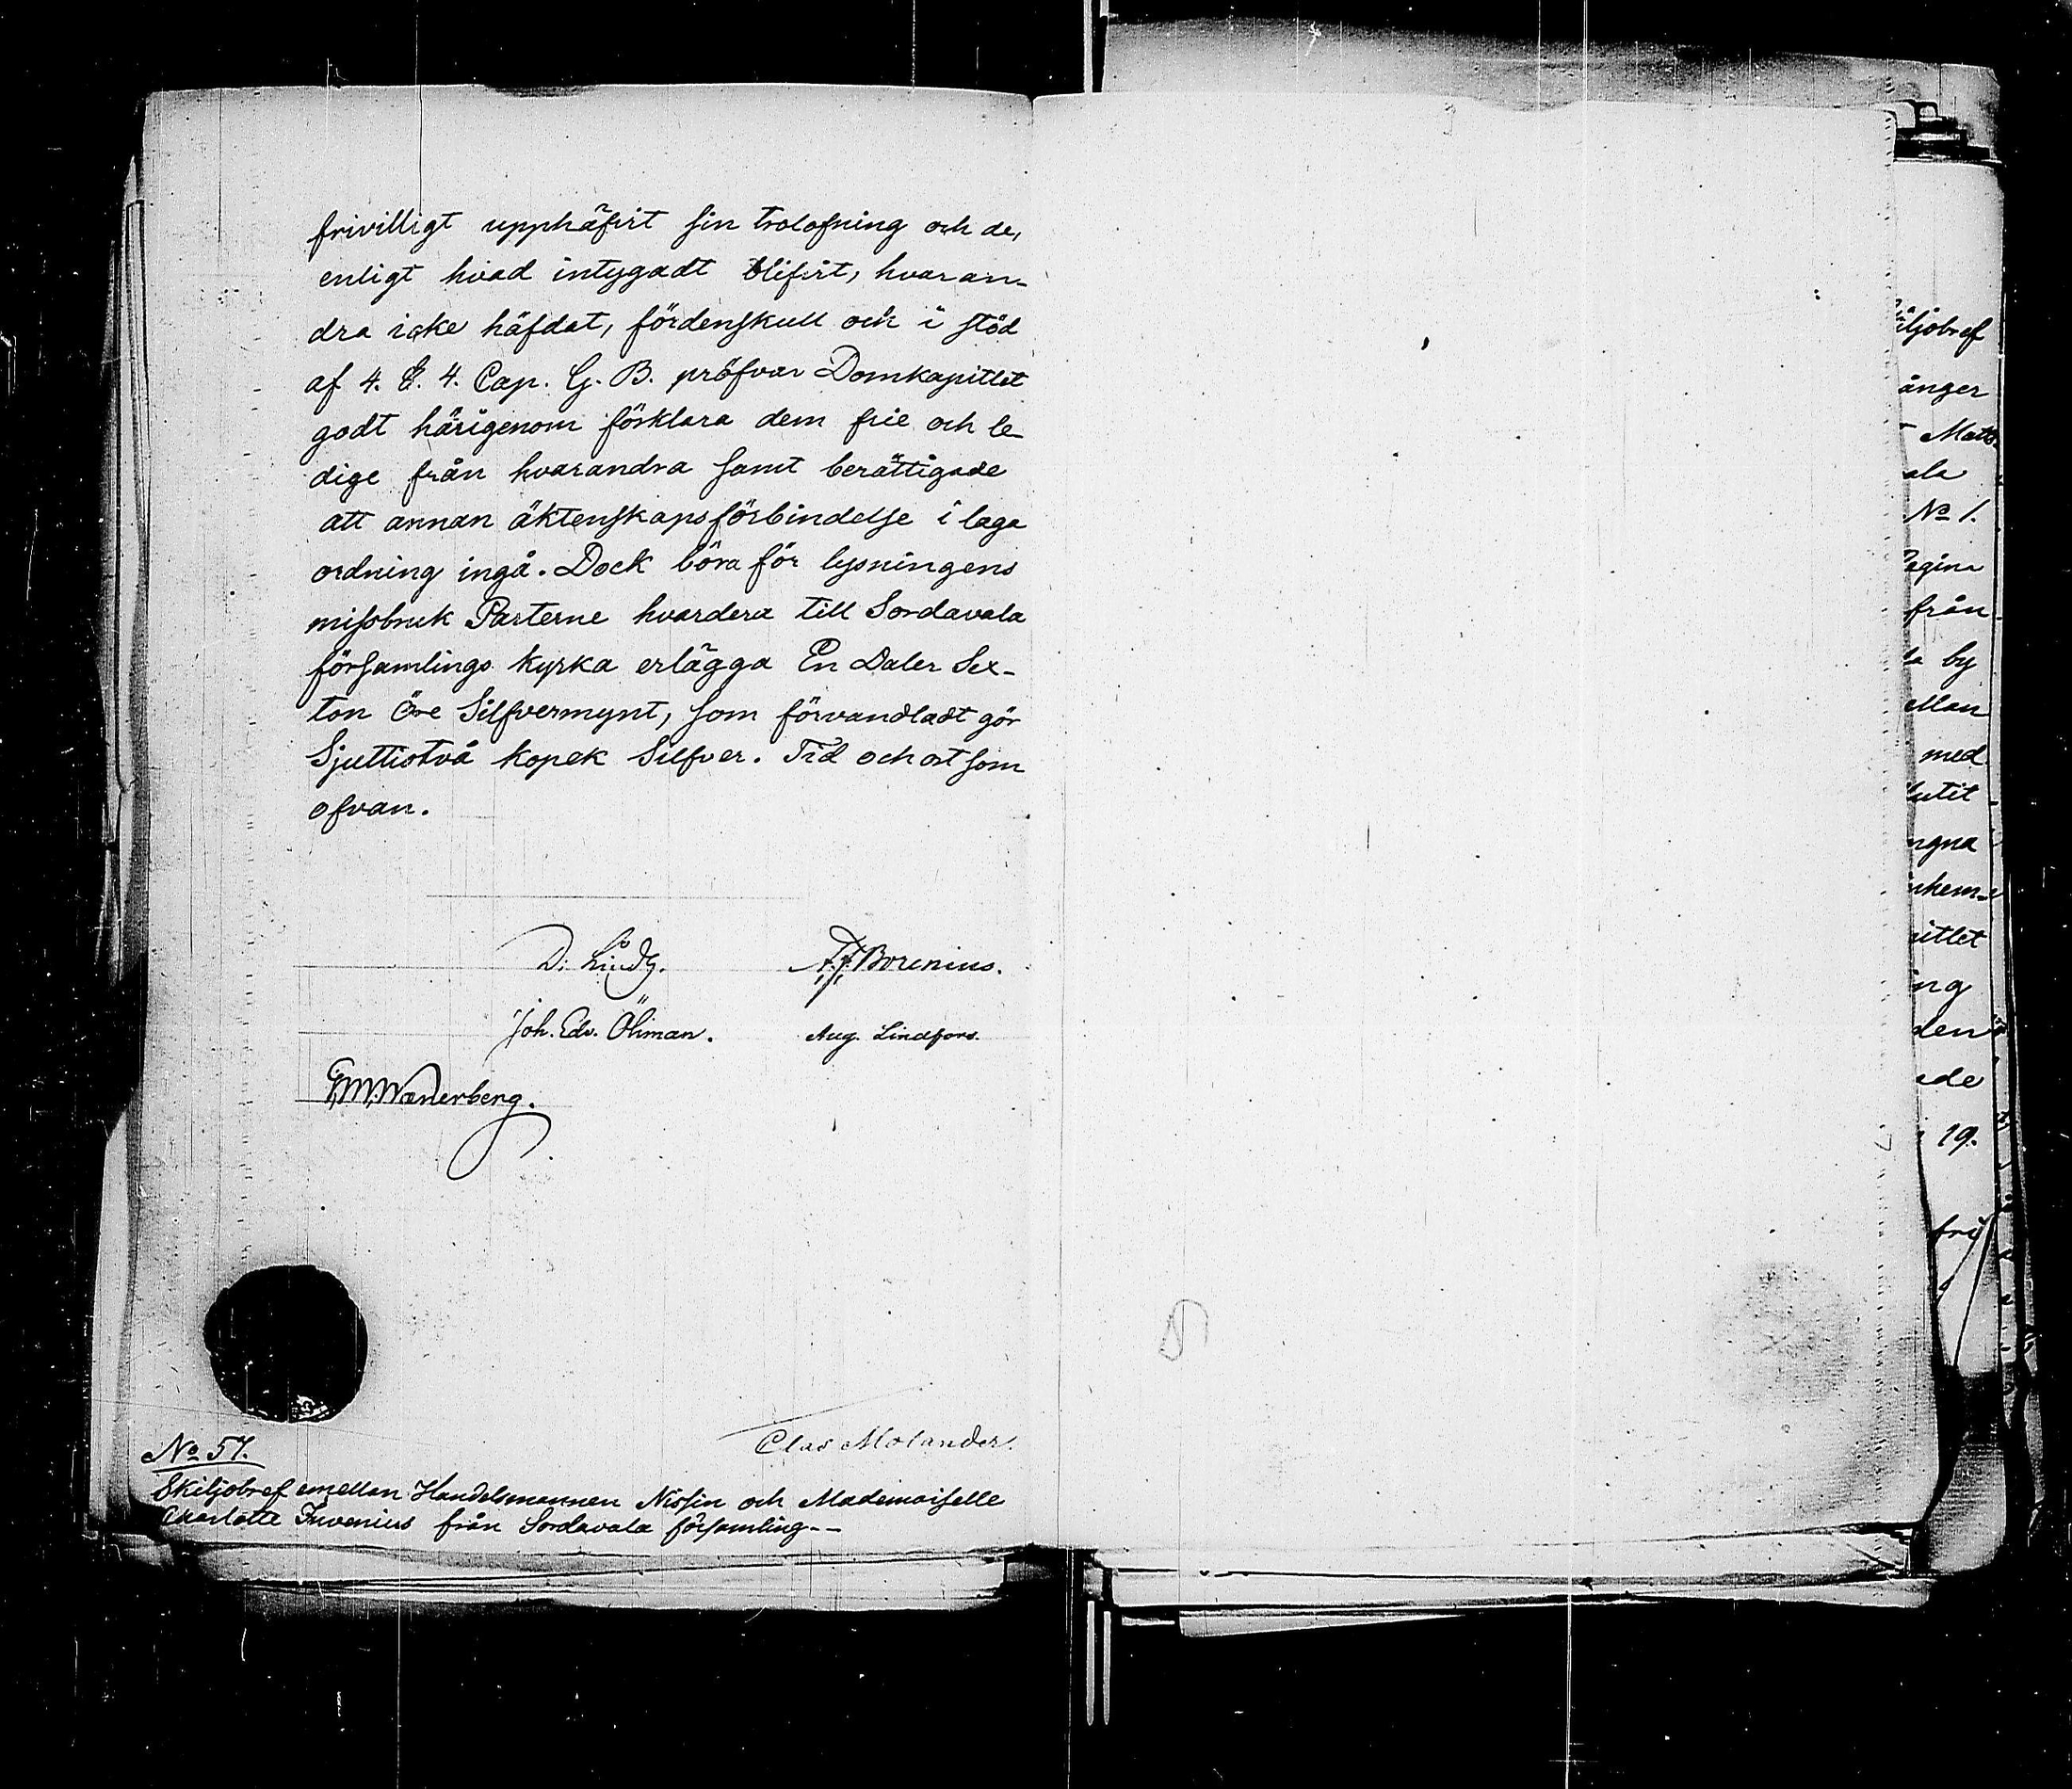 frivilligt upphäfvit sin trolofning och de,
enligt hvad intygadt blifvit, hvaran-
dra icke häfdat, fördenskull och i stöd
af 4. §. 4. Cap. G. B. pröfvar Domkapitlet
godt härigenom förklara dem frie och le-
dige från hvarandra samt berättigade
att annan äktenskapsförbindelse i laga
ordning ingå. Dock böra för lysningens
missbruk Parterne hvardera till Sordavala
församlings kyrka erlägga En Daler Sex-
ton Öre Silfvermynt, som förvandladt gör
Sjuttiotvå kopek Silfver. Tid och ort som
ofvan.
D. Lindh. A. J. Borenius.
Joh. Edv. Öhman. Aug. Lindfors.
Clas Molander.
No 57.
Skiljobref emellan Handelsmannen Nissin och Mademoiselle
Charlotte Invenius från Sordavala församling--
iljobref
ånger
Matts
ala
No 1.
egina
från
by
ellan
med
lutit
ngna
nhem-
itlet
ing
den
ade
19.
fri